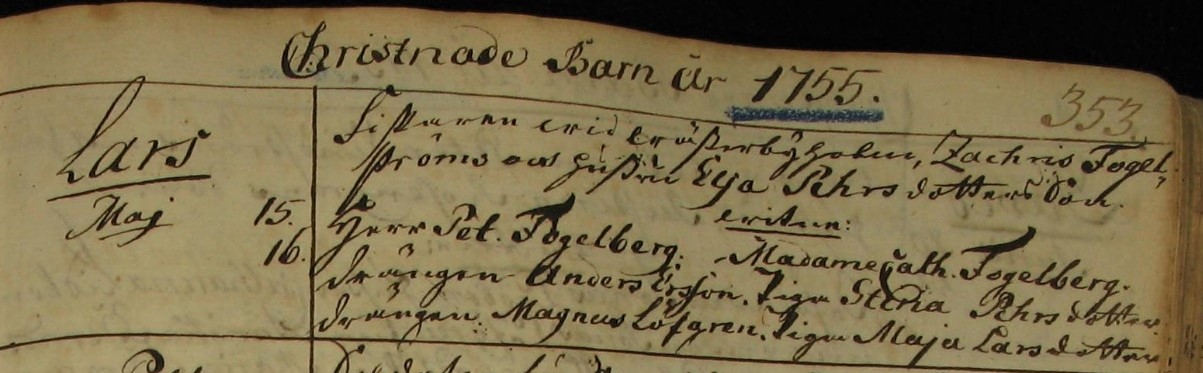 Christnade Barn år 1755.
353.
Lars
Maj 15.
16.
Fiskaren wid Zachris Fogel-
ströms och hustru Elja Pehrs dotters Son.
witne:
Herr Pet. Fogelberg. Madame Cath. Fogelberg.
drängen Anders Ersson. Piga Stina Pehrs dotter
drängen Magnus Löfgren. Piga Maja Lars dotter.